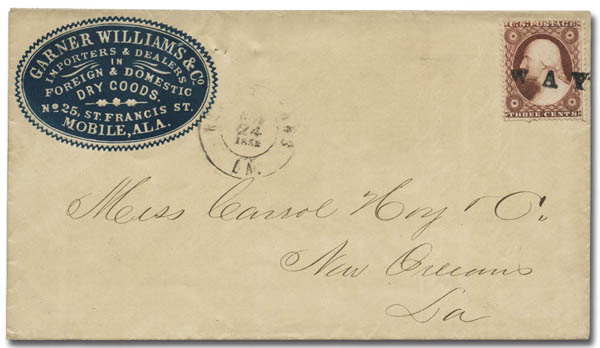 GARNER WILLIAMS & Co
IMPORTERS & DEALERS
IN
FOREIGN & DOMESTIC
DRY GOODS.
No 25, ST. FRANCIS ST.
MOBILE, ALA.
U.S. POSTAGE
WAY
THREE CENTS
24
LA.
Mess Carrol Hoy & Co.
New Orleans
La